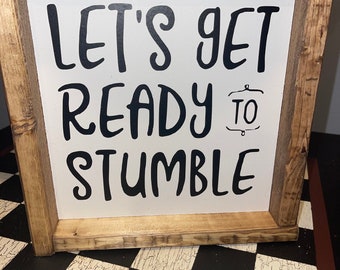 LET'S GET
READY TO
STUMBLE